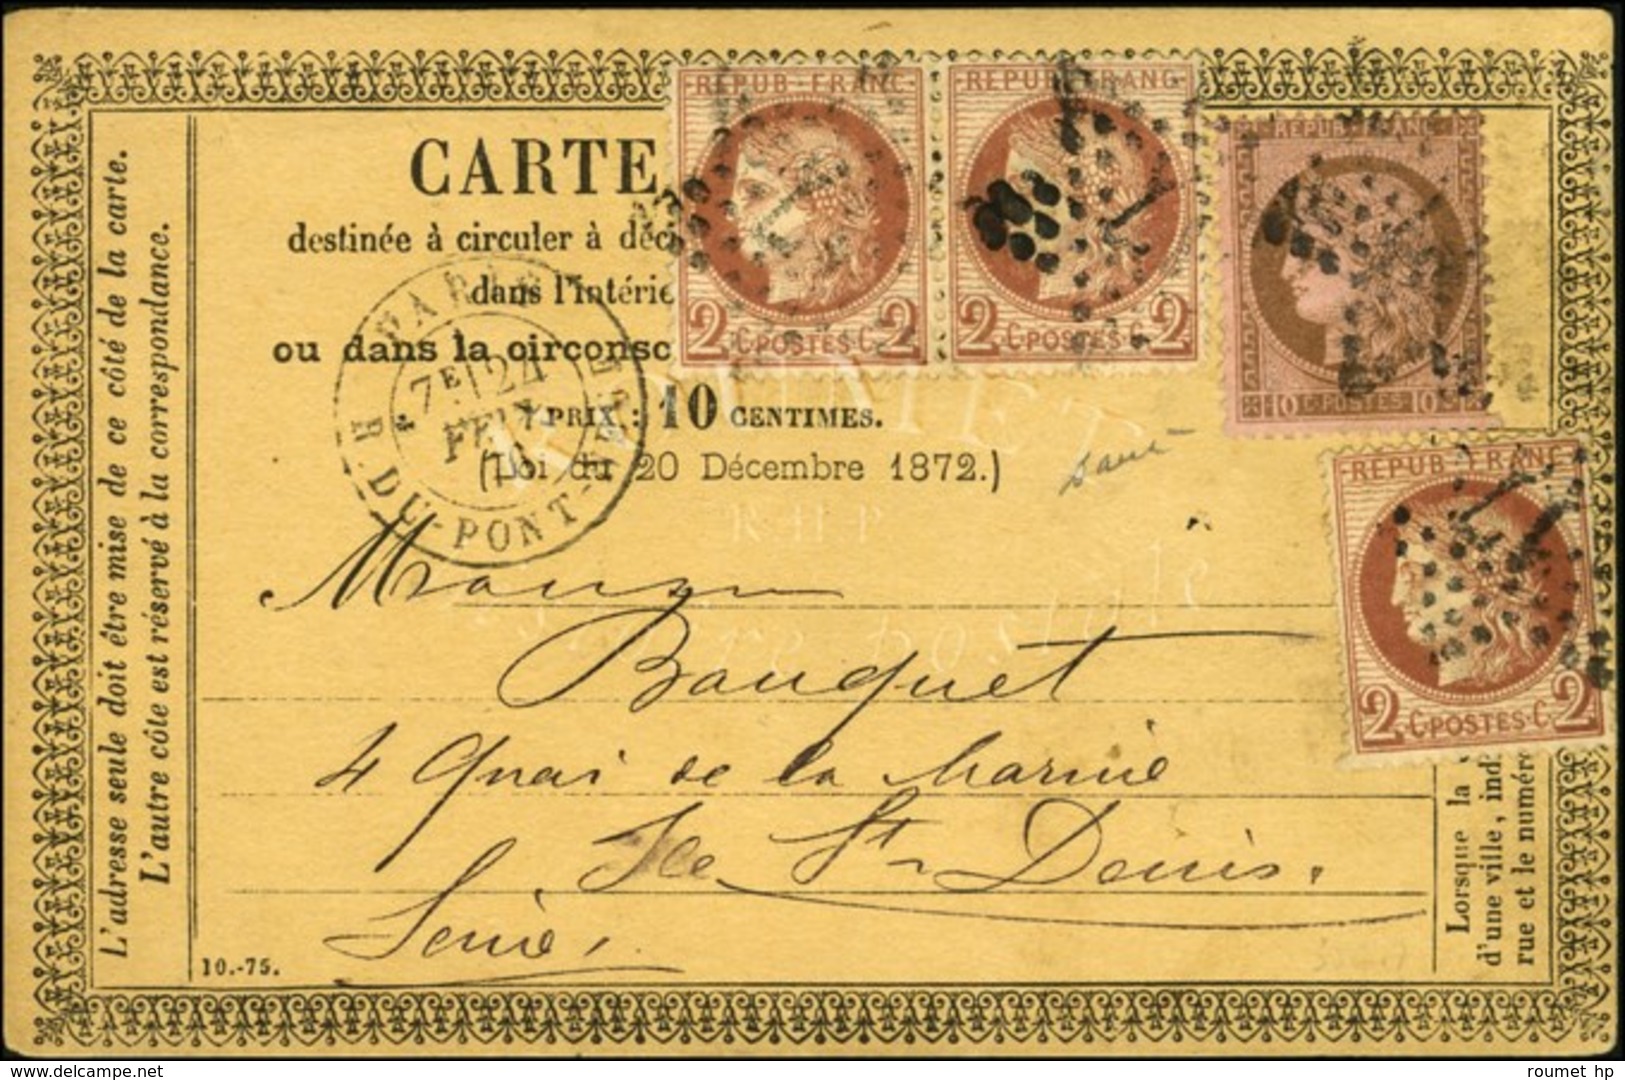 REPUB · FRANC
REPUB · FRANC
REPUB · FRANC
CARTE
destinée à circuler à déc
dans l'intérie
ou dans la circonsc
PRIX : 10 CENTIMES.
(Loi du 20 Décembre 1872.)
2 C · POSTES · C 2
2 C · POSTES · C 2
10 C · POSTES · 10 C
PARIS
7E 24
FEVR
R. DU-PONT-NEUF
REPUB · FRANC
2 C · POSTES · C 2
ROUMET
R.H.P.
histoire postale
Monsieur
Bouquet
4 Quai de la Marine
Ile St Denis.
Seine.
L'adresse seule doit être mise de ce côté de la carte.
L'autre côté est réservé à la correspondance.
10.-75.
Lorsque la
d'une ville, indi
rue et le numéro
delcampe.net
roumet hp